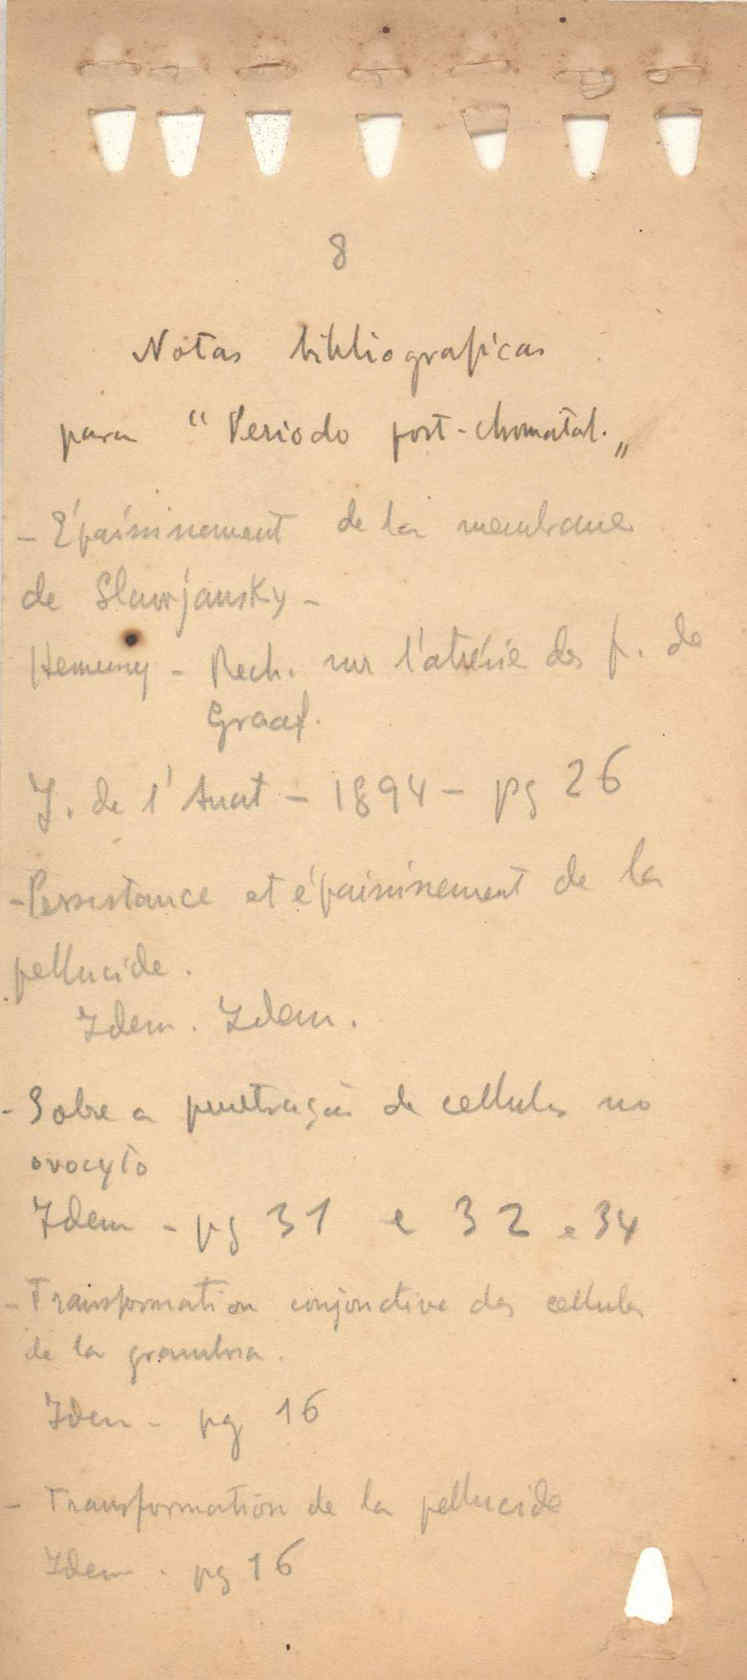 8
Notas bibliograficas
para "Periodo post-chomatal.„
- Épaississement de la membrane
de Slavjansky -
Henneguy - Rech. sur l'atrésie des f. de
Graaf.
J. de l'Anat - 1894 - pg 26
- Persistance et épaississement de la
pellucide.
Idem. Idem.
- Sobre a penetração de cellulas no
ovocyto
Idem - pg 31 e 32 e 34
- Transformation conjonctive des cellules
de la granulosa.
Idem - pg 16
- Transformation de la pellucide
Idem - pg 16